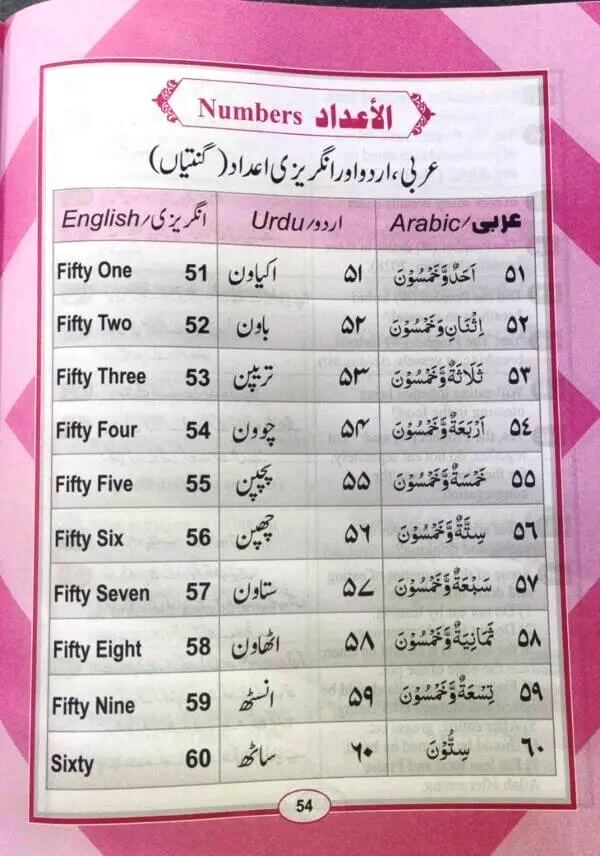 Numbers الأعداد
عربی، اردو اور انگریزی اعداد (گنتیاں)
English/انگریزی Urdu/اردو Arabic/عربی
Fifty One 51 اکیاون ۵۱ اَحَدٌ وَّخَمْسُوْنَ ٥١
Fifty Two 52 باون ۵۲ اِثْنَانِ وَخَمْسُوْنَ ٥٢
Fifty Three 53 تریپن ۵۳ ثَلَاثَةٌ وَّخَمْسُوْنَ ٥٣
Fifty Four 54 چوون ۵۴ اَرْبَعَةٌ وَّخَمْسُوْنَ ٥٤
Fifty Five 55 پچپن ۵۵ خَمْسَةٌ وَّخَمْسُوْنَ ٥٥
Fifty Six 56 چھپن ۵۶ سِتَّةٌ وَّخَمْسُوْنَ ٥٦
Fifty Seven 57 ستاون ۵۷ سَبْعَةٌ وَّخَمْسُوْنَ ٥٧
Fifty Eight 58 اٹھاون ۵۸ ثَمَانِيَةٌ وَّخَمْسُوْنَ ٥٨
Fifty Nine 59 انسٹھ ۵۹ تِسْعَةٌ وَّخَمْسُوْنَ ٥٩
Sixty 60 ساٹھ ۶۰ سِتُّوْنَ ٦٠
54